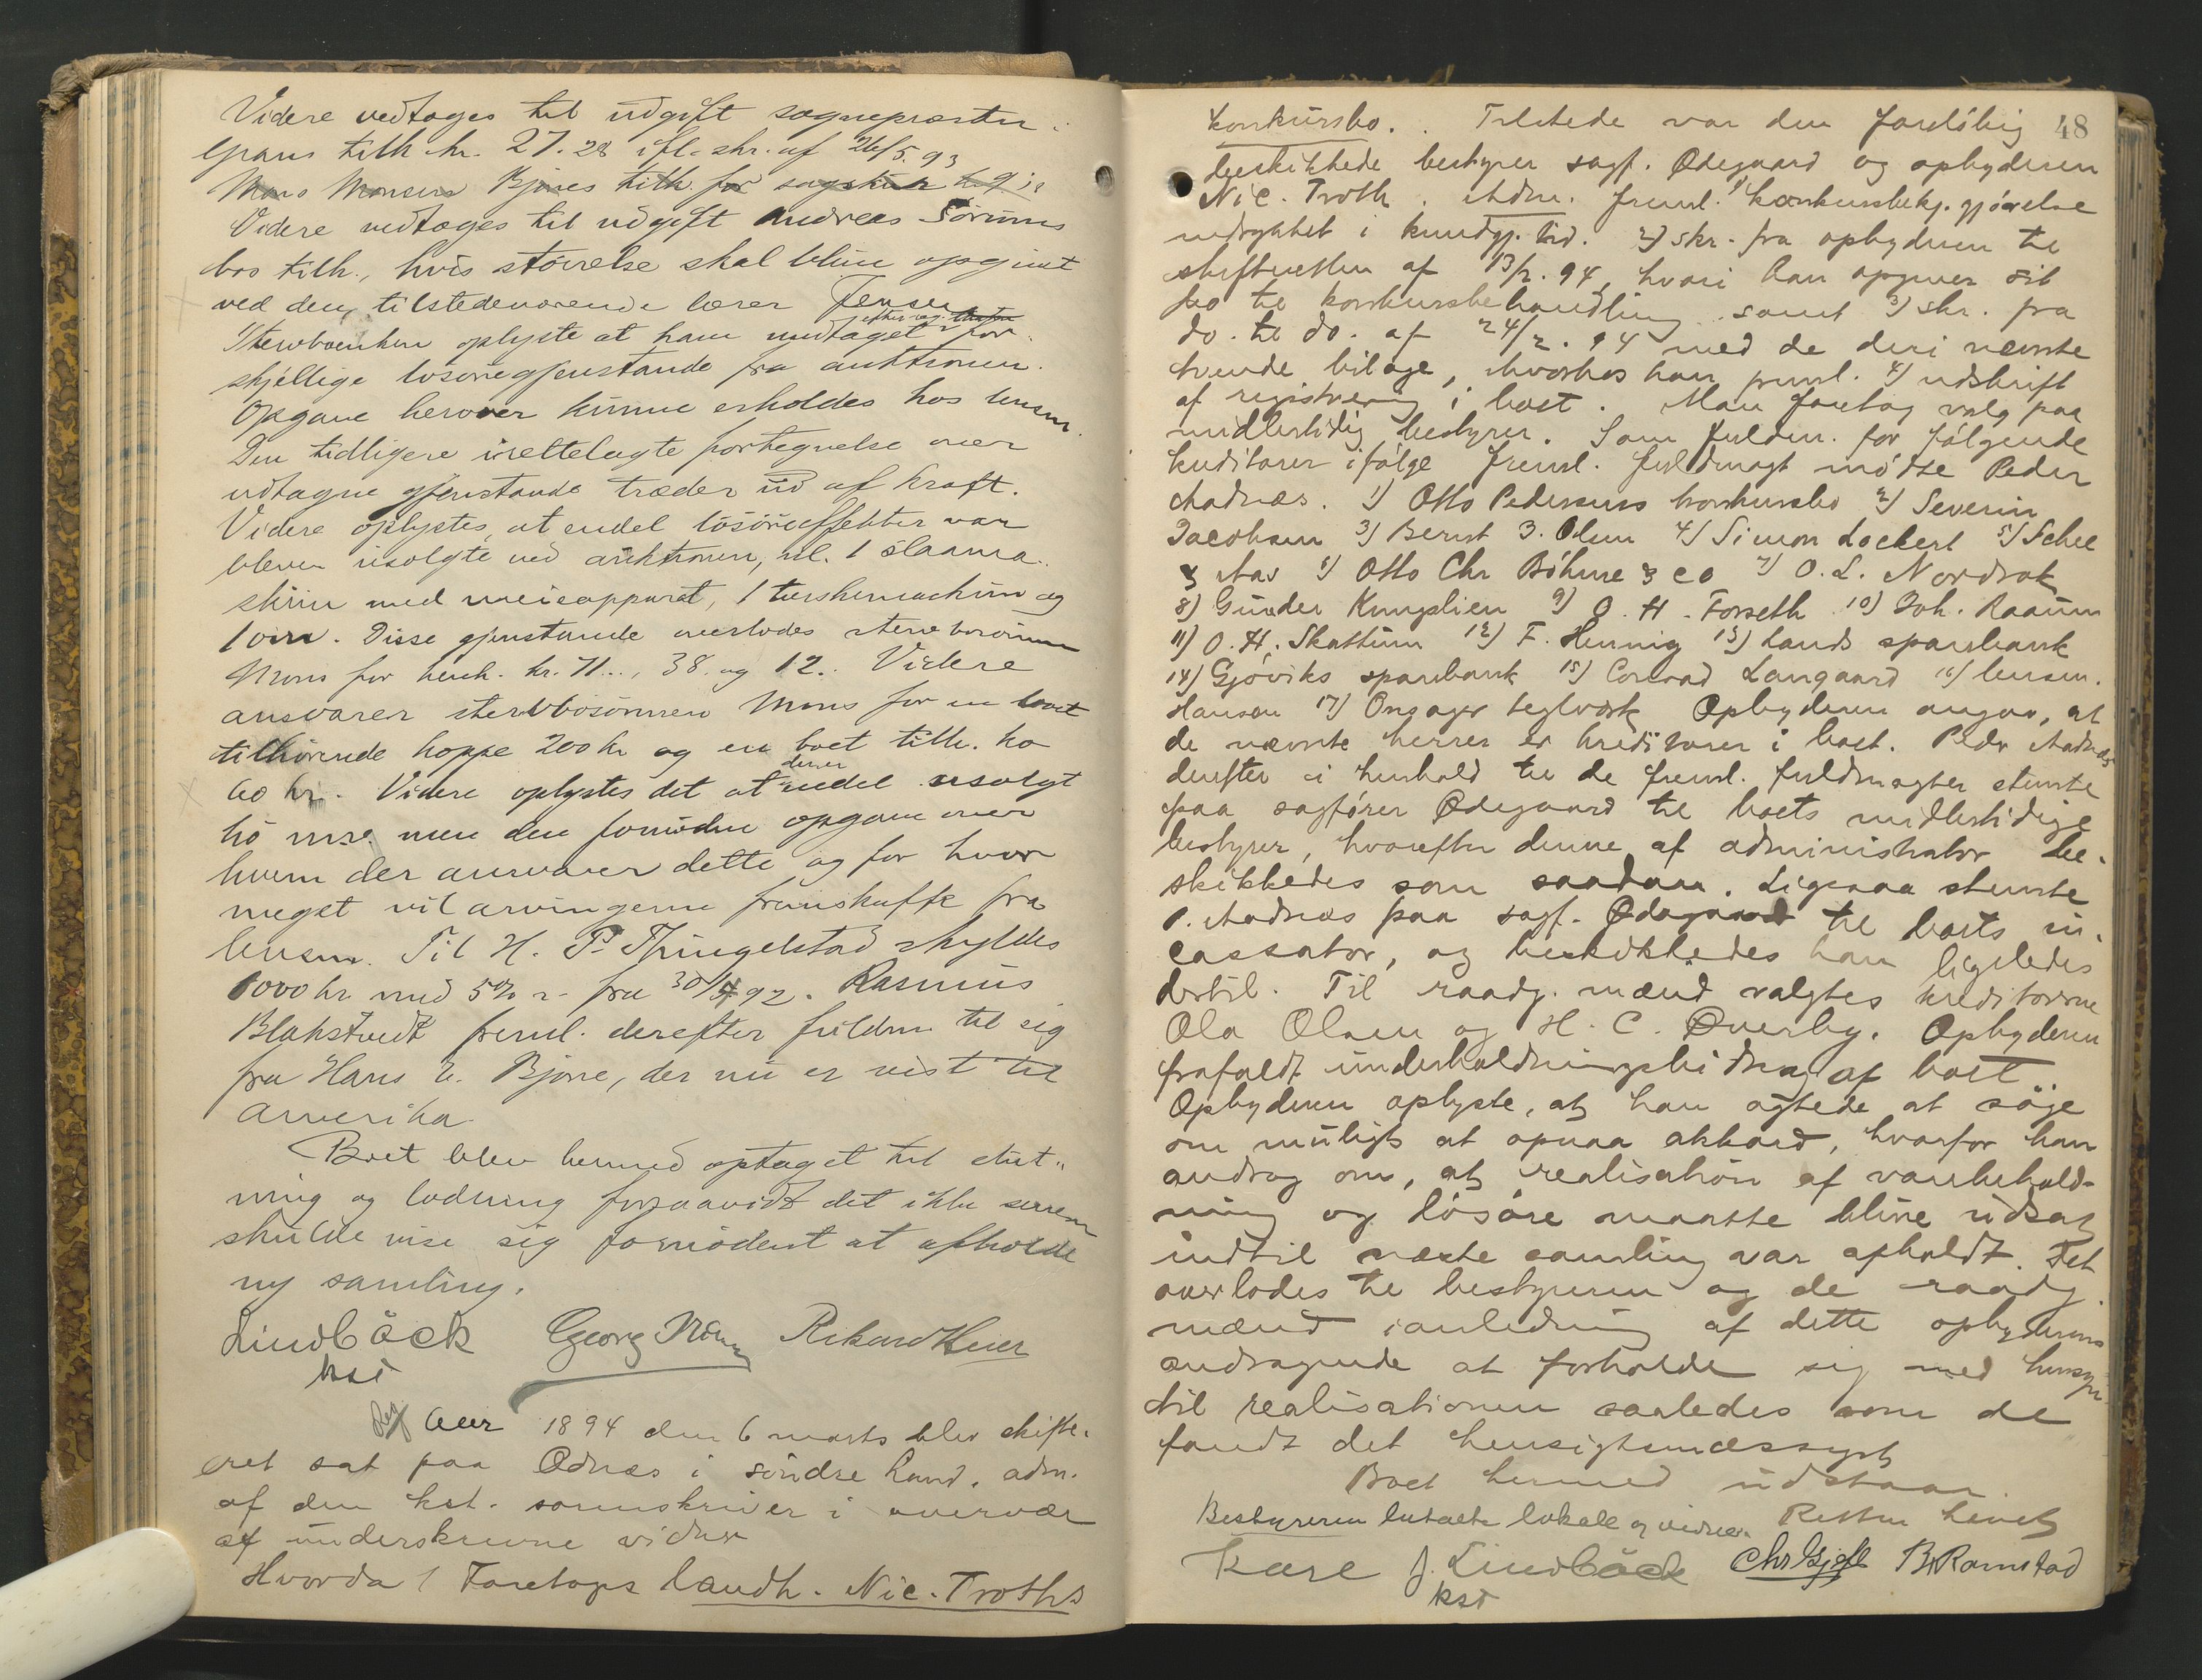 Videre vedtages til udgift sogneprestens
tilh. kr. 27.28 ifl. skr. af 26/5. 93
Mons Monsens Bjøres tilh. for
Videre vedtages til udgift Andreas Sørums
bos tilh., hvis størrelse skal blive opgivet
ved den tilstedeværende lærer Jensen
Sterbboenken oplyste at have modtaget efter reg. for
skjellige løsøregjenstande fra auktionen.
Opgave herover kunne erholdes hos lensm.
Den tidligere irettelagte fortegnelse over
udtagne gjenstande træder ud af kraft.
Videre oplystes, at endel løsøreeffekter var
bleven usolgte ved auktionen, nl. 1 slaama-
skin med meieapparat, 1 tærskemaskin og
1 ovn. Disse gjenstande overlodes sterbbosønnen
Mons for henh. kr. 71..., 38. og 12. Videre
ansvarer sterbbosønnen Mons for en boet
tilhørende hoppe 200 kr og en boet tilh. ko
60 kr. Videre oplystes det at der er endel usolgt
hø m.v. men den fornødne opgave over
hvem der ansvarer dette og for hvor
meget vil arvingerne fremskaffe fra
lensm. Til H. P. Thingelstad skyldes
1000 kr med 5% r. fra 30/4 92. Rasmus
Blakstvedt freml. derefter fuldm. til sig
fra Hans Bjøre, der nu er reist til
Amerika
Boet blev hermed optaget til slut-
ning og lodning forsaavidt det ikke senere
skulde vise sig fornødent at afholde
ny samling.
Lindbäck Georg Rikard Heier
kst
Reg Aar 1894 den 6 marts blev skifte-
ret sat paa Odnæs i søndre Land, adm.
af den kst. sorenskriver i overvær
af underskrevne vidner
Hvorda 1 Foretoges landh. Nic. Troths
48
konkursbo. Tilstede var den foreløbig
beskikkede bestyrer sagf. Ødegaard og opbyderen
Nic. Troth. Adm. freml. 1) konkursbekj. gjørelse
indrykket i kundgj. tid. 2) skr. fra opbyderen til
skifteretten af 13/2. 94, hvori han opgiver sit
bo til konkursbehandling samt 3) skr. fra
do. til do. af 24/2. 94 med de deri nævnte
tvende bilage, hvorhos han freml. 4) udskrift
af registrering i boet. Man foretog valg paa
midlertidig bestyrer. Som fuldm. for følgende
kreditorer ifølge freml. fuldmagt mødte Peder
Aadnæs. 1) Otto Pedersens konkursbo 2) Severin
Jacobsen 3) Bernt J. Olsen 4) Simon Lockert 5) Schee
& Aas 6) Otto Chr Böhme & Co 7) O. L. Nordrak
8) Gunder Kungslien 9) O. H. Forseth 10) Joh. Raaum
11) O. H. Skattum 12) F. Hennig 13) Lands sparebank
14) Gjøviks sparebank 15) Conrad Langaard 16) lensm.
Hansen 17) Onsager teglværk Opbyderen angav, at
de nævnte herrer er kreditorer i boet. Peder Aadnæs
derefter i henhold til de freml. fuldmagter stemte
paa sagfører Ødegaard til boets midlertidige
bestyrer, hvorefter denne af administrator be-
skikkedes som saadan. Ligesaa stemte
P. Aadnæs paa sagf. Ødegaard til boets in-
cassator, og beskikkedes han ligeledes
dertil. Til raadg. mænd valgtes kreditorerne
Ola Olsen og H. C. Øverby. Opbyderen
frafaldt underholdningsbidrag af boet.
Opbyderen oplyste, at han agtede at søge
om muligt at opnaa akkord, hvorfor han
androg om, at realisation af varebehold-
ning og løsøre maatte blive udsat
indtil næste samling var afholdt. Det
overlodes til bestyreren og de raadg.
mænd i anledning af dette opbyderens
andragende at forholde sig med hensyn
til realisationen saaledes som de
fandt det hensigtsmæssigst
Boet hermed udstaar.
Bestyreren betalte lokale og vidner. Retten hevet
Kaare J. Lindbäck Chr Gjefle B. Ramstad
kst